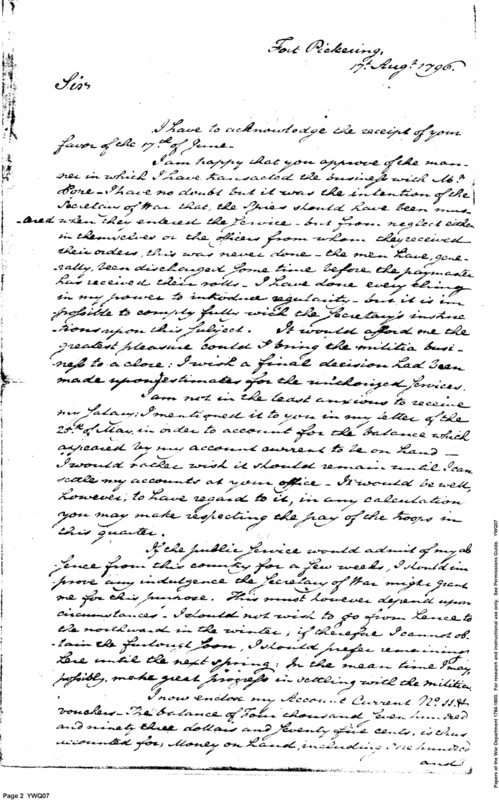 Fort Pickering,
17th Augt. 1796.
Sir
I have to acknowledge the receipt of your
favor of the 17th of June.
I am happy that you approve of the man-
ner in which I have transacted the business with Mr.
Gore - I have no doubt but it was the intention of the
Secretary of War that, the Spies should have been mus-
tered when they entered the Service - but from neglect either
in themselves or the officers from whom they received
their orders, this was never done - the men have, gene-
rally, been discharged some time before the paymaster
has received their rolls - I have done every thing
in my power to introduce regularity - but it is im
possible to comply fully with the Secretary's instruc
tions upon this subject. It would afford me the
greatest pleasure could I bring the militia busi-
ness to a close; I wish a final decision had been
made upon estimates for the Services.
I am not in the least anxious to receive
my Salary; I mentioned it to you in my letter of the
25th of May, in order to account for the balance which
appeared by my account current to be on hand -
I would rather wish it should remain until I can
settle my accounts at your office - It would be well,
however, to have regard to it, in any calculation
you may make respecting the pay of the troops in
this quarter.
If the public Service would admit of my ab
sence from this country for a few weeks, I should im
prove any indulgence the Secretary of War might grant
me for this purpose. This must however depend upon
circumstances - I should not wish to go from hence to
the northward in the winter; if therefore I cannot ob-
tain the furlough soon, I should prefer remaining
here until the next spring; In the mean time I may,
possibly, make great progress in settling with the militia.
I now enclose my Account Current No. 11 &
vouchers - The balance of Four thousand Seven hundred
and ninety three dollars and Seventy five cents, is thus
accounted for, Money on hand, including one hundred
and
Page 2 YWQ07
Papers of the War Department 1784-1800. For research and instructional use only. See Permissions Guide. YWQ07